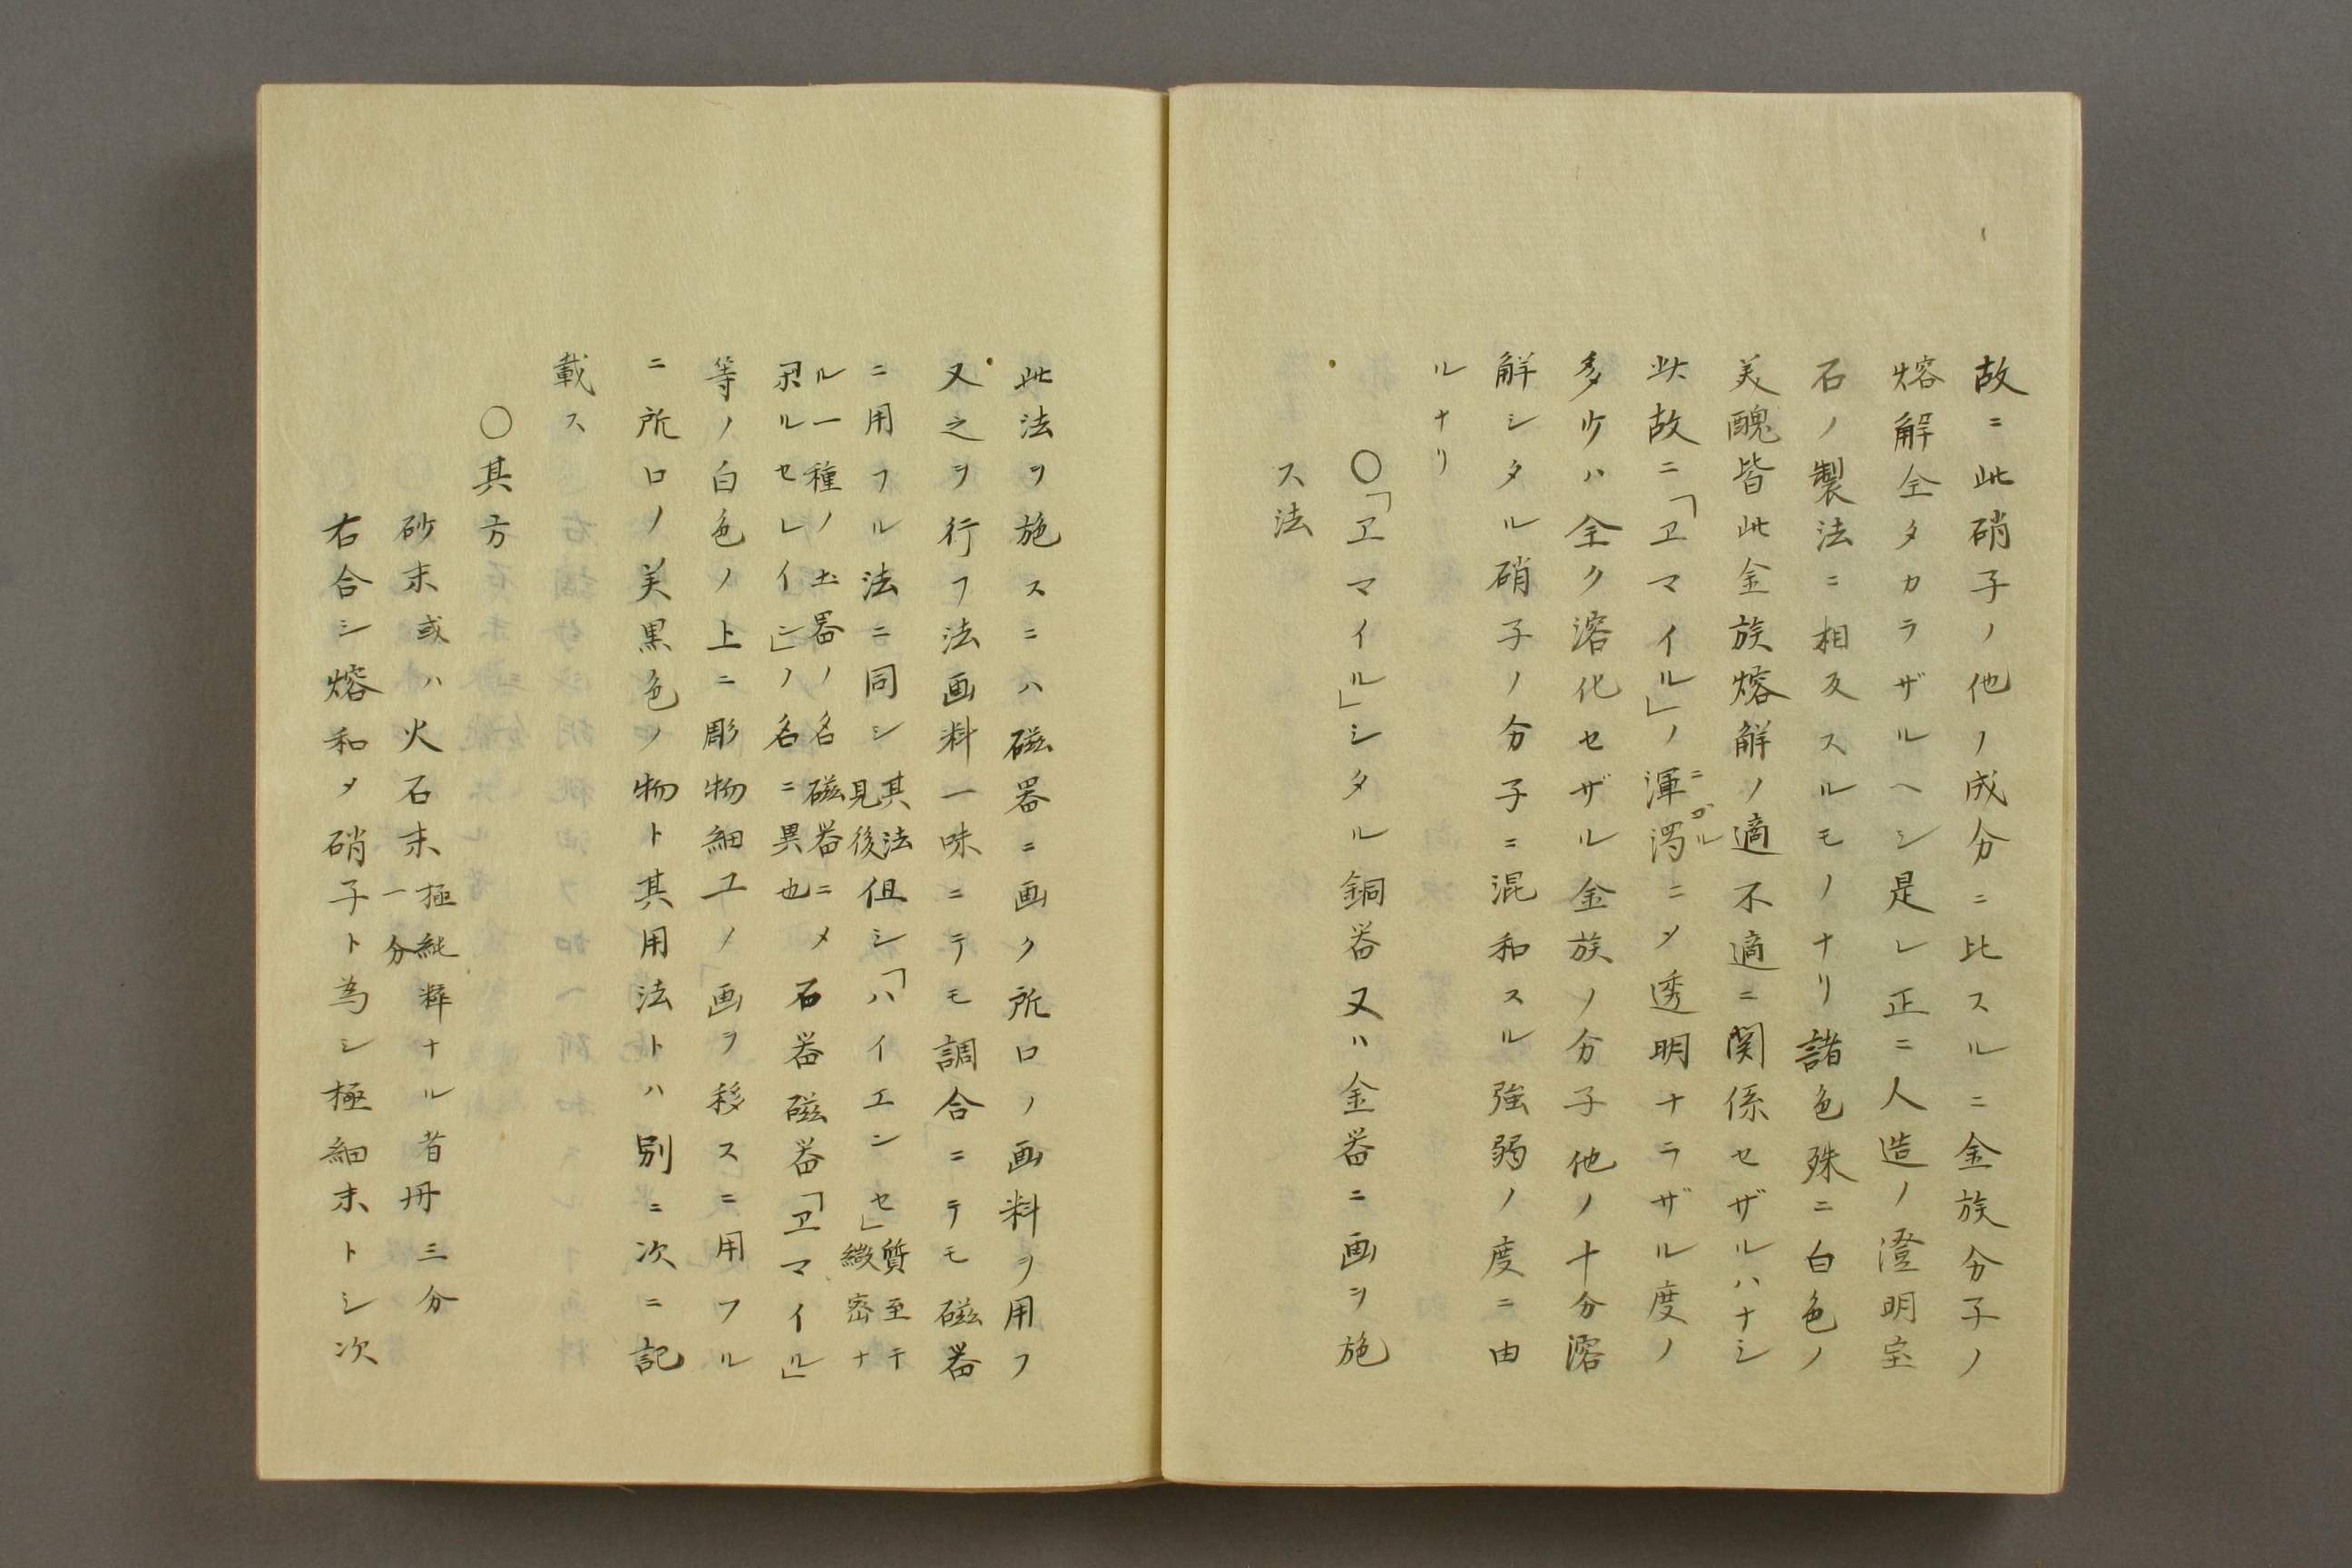 故ニ此硝子ノ他ノ成分ニ比スルニ金族分子ノ
熔解全タカラザルヘシ是レ正ニ人造ノ澄明宝
石ノ製法ニ相反スルモノナリ諸色殊ニ白色ノ
美醜皆此金族熔解ノ適不適ニ関係セザルハナシ
此故ニ「ヱマイル」ノ渾濁ニメ透明ナラザル度ノ
ニゴル
多少ハ全ク溶化セザル金族ノ分子他ノ十分溶
解シタル硝子ノ分子ニ混和スル強弱ノ度ニ由
ルナリ
○「ヱマイル」シタル銅器又ハ金器ニ画ヲ施
ス法
此法ヲ施スニハ磁器ニ画ク所ロノ画料ヲ用フ
又之ヲ行フ法画料一味ニテモ調合ニテモ磁器
ニ用フル法ニ同シ其法見後但シ「ハイエンセ」質至テ緻密ナ
ル一種ノ土器ノ名磁器ニメ
ホルセレイン」ノ名ニ異也石器磁器「ヱマイル」
等ノ白色ノ上ニ彫物細工ノ画ヲ移スニ用フル
ニ所ロノ美黒色ノ物ト其用法トハ別ニ次ニ記
載ス
○其方
砂末或ハ火石末極純粋ナル者一分 丹三分
右合シ熔和メ硝子ト為シ極細末トシ次